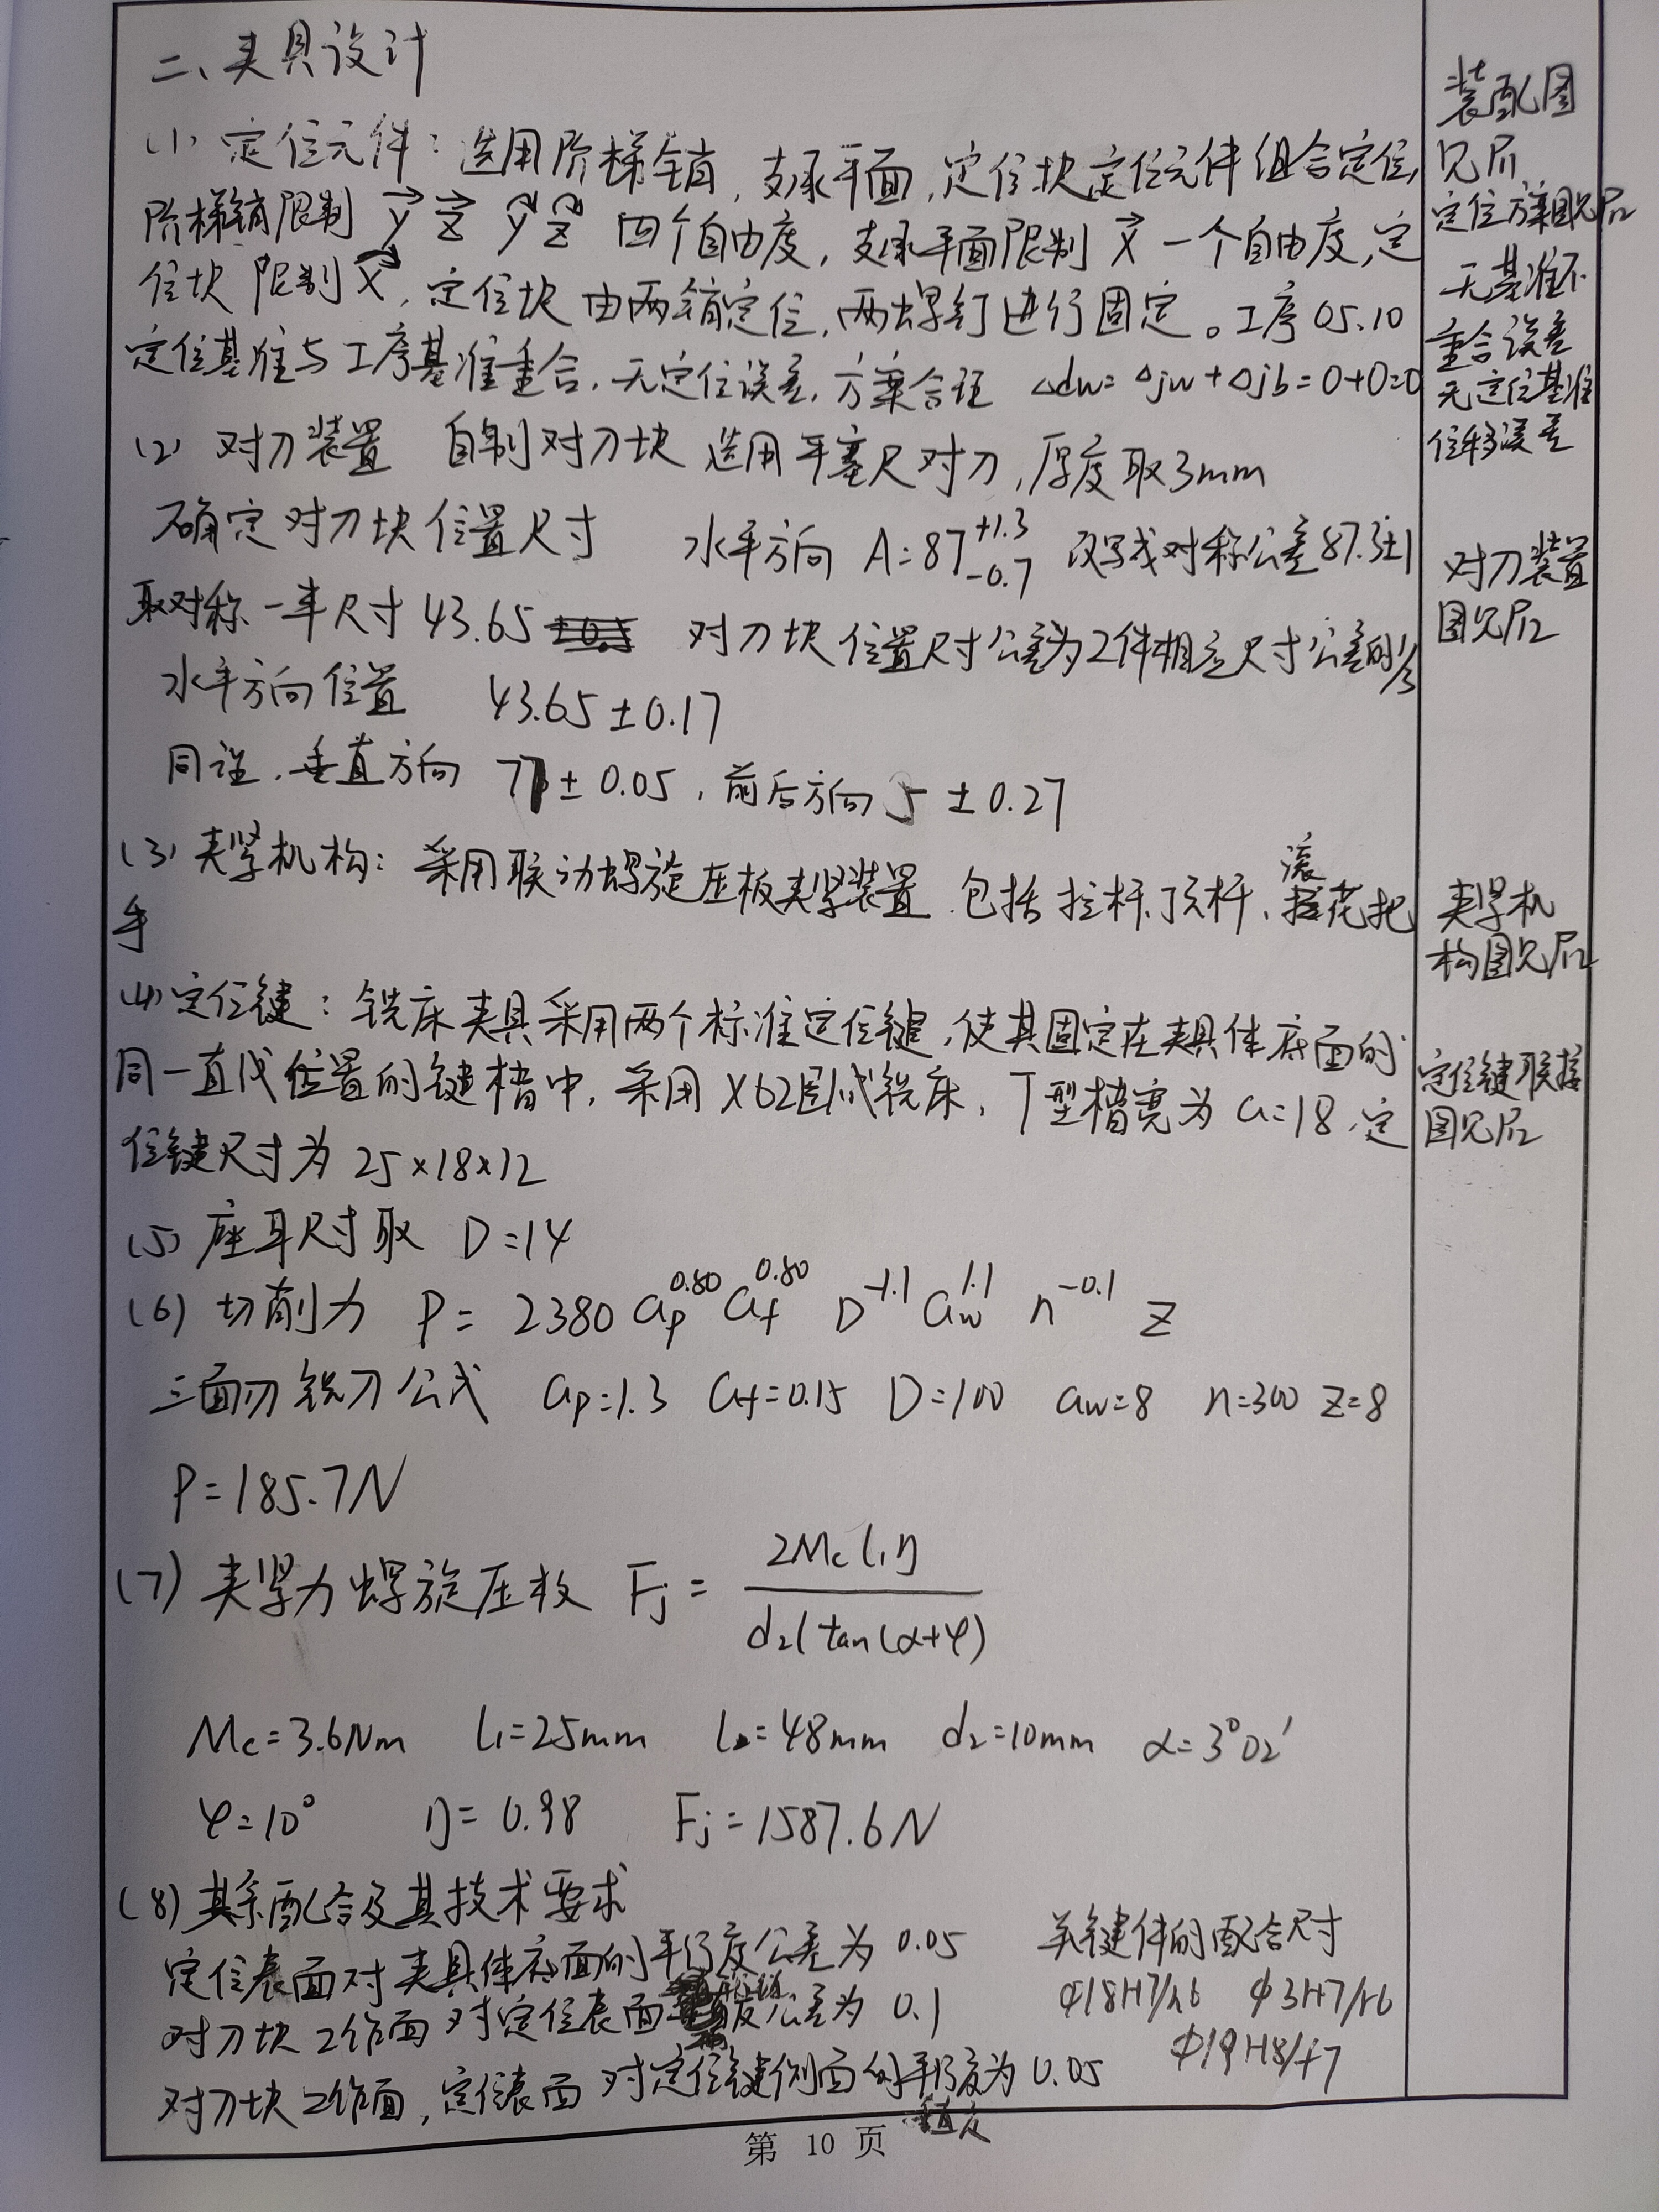 二、夹具设计
(1) 定位元件：选用阶梯销，支承平面，定位块定位元件组合定位，
阶梯销限制 y⃗ z⃗ y z 四个自由度，支承平面限制 x⃗ 一个自由度，定
位块 限制 x，定位块由两销定位，两螺钉进行固定。工序05.10
定位基准与工序基准重合，无定位误差，方案合理 Δdw=Δjw+Δjb=0+0=0
(2) 对刀装置 自制对刀块 选用平塞尺对刀，厚度取3mm
确定对刀块位置尺寸 水平方向 A=87 +1.3 -0.7 改写成对称公差87.3±1
取对称一半尺寸 43.65 对刀块位置尺寸公差为工件相应尺寸公差的1/3
水平方向位置 43.65±0.17
同理，垂直方向 ±0.05，前后方向 5±0.27
(3) 夹紧机构：采用联动螺旋压板夹紧装置 包括拉杆、顶杆、滚花把
手
(4) 定位键：铣床夹具采用两个标准定位键，使其固定在夹具体底面的
同一直线位置的键槽中，采用X62卧式铣床，T型槽宽为a=18，定
位键尺寸为 25×18×12
(5) 座耳尺寸取 D=14
(6) 切削力 P= 2380 ap^0.80 af^0.80 D^-1.1 aw^1.1 n^-0.1 z
三面刃铣刀公式 ap=1.3 af=0.15 D=100 aw=8 n=300 z=8
P=185.7N
(7) 夹紧力 螺旋压板 Fj = 2Mc l1 η / d2 l tan(α+φ)
Mc=3.6Nm l1=25mm l=48mm d2=10mm α=3°02′
φ=10° η=0.98 Fj=1587.6N
(8) 其余配合及其技术要求
定位表面对夹具体底面的平行度公差为 0.05 关键件的配合尺寸
对刀块工作面对定位表面 度公差为 0.1 φ18H7/h6 φ3H7/r6
φ19H8/f7
对刀块工作面，定位表面对定位键侧面的平行度为0.05
垂直度
第 10 页
装配图
见后
定位方案图见后
无基准不
重合误差
无定位基准
位移误差
对刀装置
图见后
夹紧机
构图见后
定位键联接
图见后